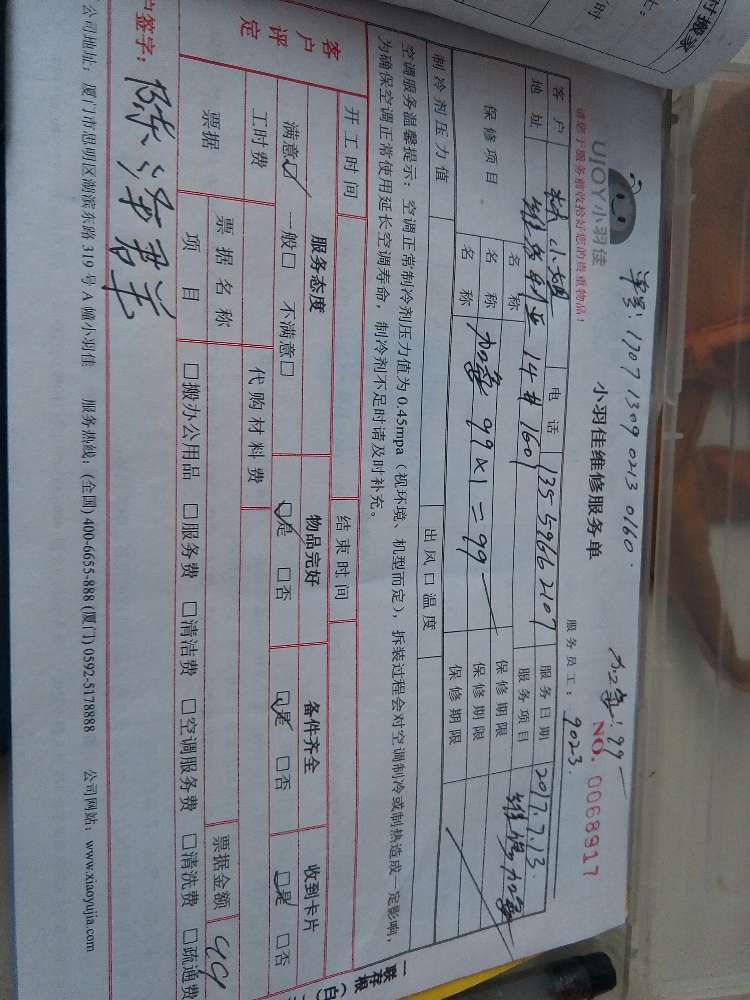 单号：1707 1309 0213 0160.
加氟：99一
UJOY小羽佳
小羽佳维修服务单
NO. 0068917
请您于服务前收拾好您的贵重物品！
服务员工：9023.
客户 小姐 电话 135 5966 2107 服务日期 2017.7.13.
地址 14# 1601 服务项目 维修加氟
保修项目 名称 保修期限
名称 加氟 99×1=99一 保修期限
名称 保修期限
制冷剂压力值 出风口温度
空调服务温馨提示：空调正常制冷剂压力值为 0.45mpa（视环境、机型而定），拆装过程会对空调制冷或制热造成一定影响，
为确保空调正常使用延长空调寿命，制冷剂不足时请及时补充。
开工时间 结束时间
客户评定 服务态度 物品完好 备件齐全 收到卡片
满意☑ 一般□ 不满意□ ☑是 □否 ☑是 □否 ☑是 □否
工时费 代购材料费
票据 票据名称 票据金额
项目 □搬办公用品 □服务费 □清洁费 □空调服务费 □清洗费 □疏通费
户签字：陈
公司地址：厦门市思明区湖滨东路 319 号 A 幢小羽佳 服务热线：(全国) 400-6655-888 (厦门) 0592-5178888 公司网站：www.xiaoyujia.com
一联存根（白）